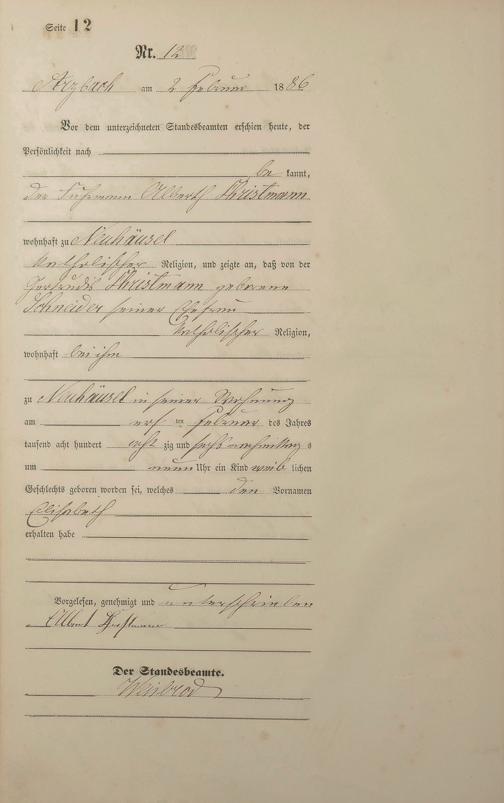 Seite 12
Nr. 12
Arzbach am 2 Februar 1886
Vor dem unterzeichneten Standesbeamten erschien heute, der
Persönlichkeit nach
be kannt,
der Fuhrmann Alberth Christmann
wohnhaft zu Neuhäusel
katholischer Religion, und zeigte an, daß von der
Gertrudis Christmann geborene
Schneider seiner Ehefrau
katholischer Religion,
wohnhaft bei ihm
zu Neuhäusel in seiner Wohnung
am ersten Februar des Jahres
tausend acht hundert acht zig und sechs nachmittags
um neun Uhr ein Kind weib lichen
Geschlechts geboren worden sei, welches den Vornamen
Elisabeth
erhalten habe
Vorgelesen, genehmigt und unterschrieben
Albert Christmann
Der Standesbeamte.
Weisbrod